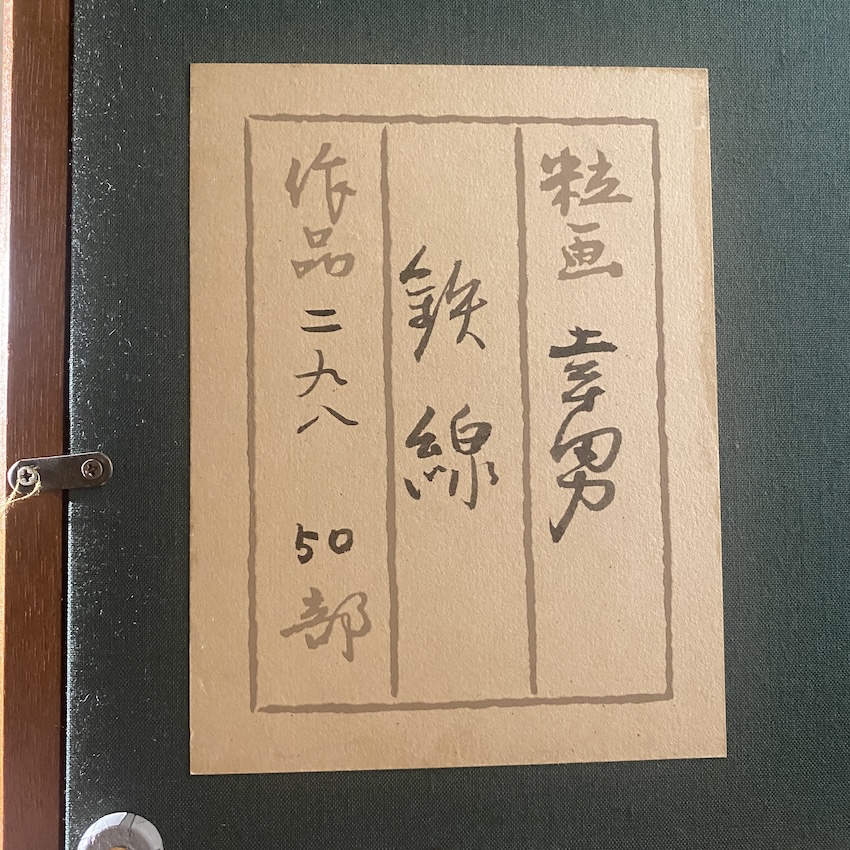 粒画 幸男
鉄線
作品二九八 50部